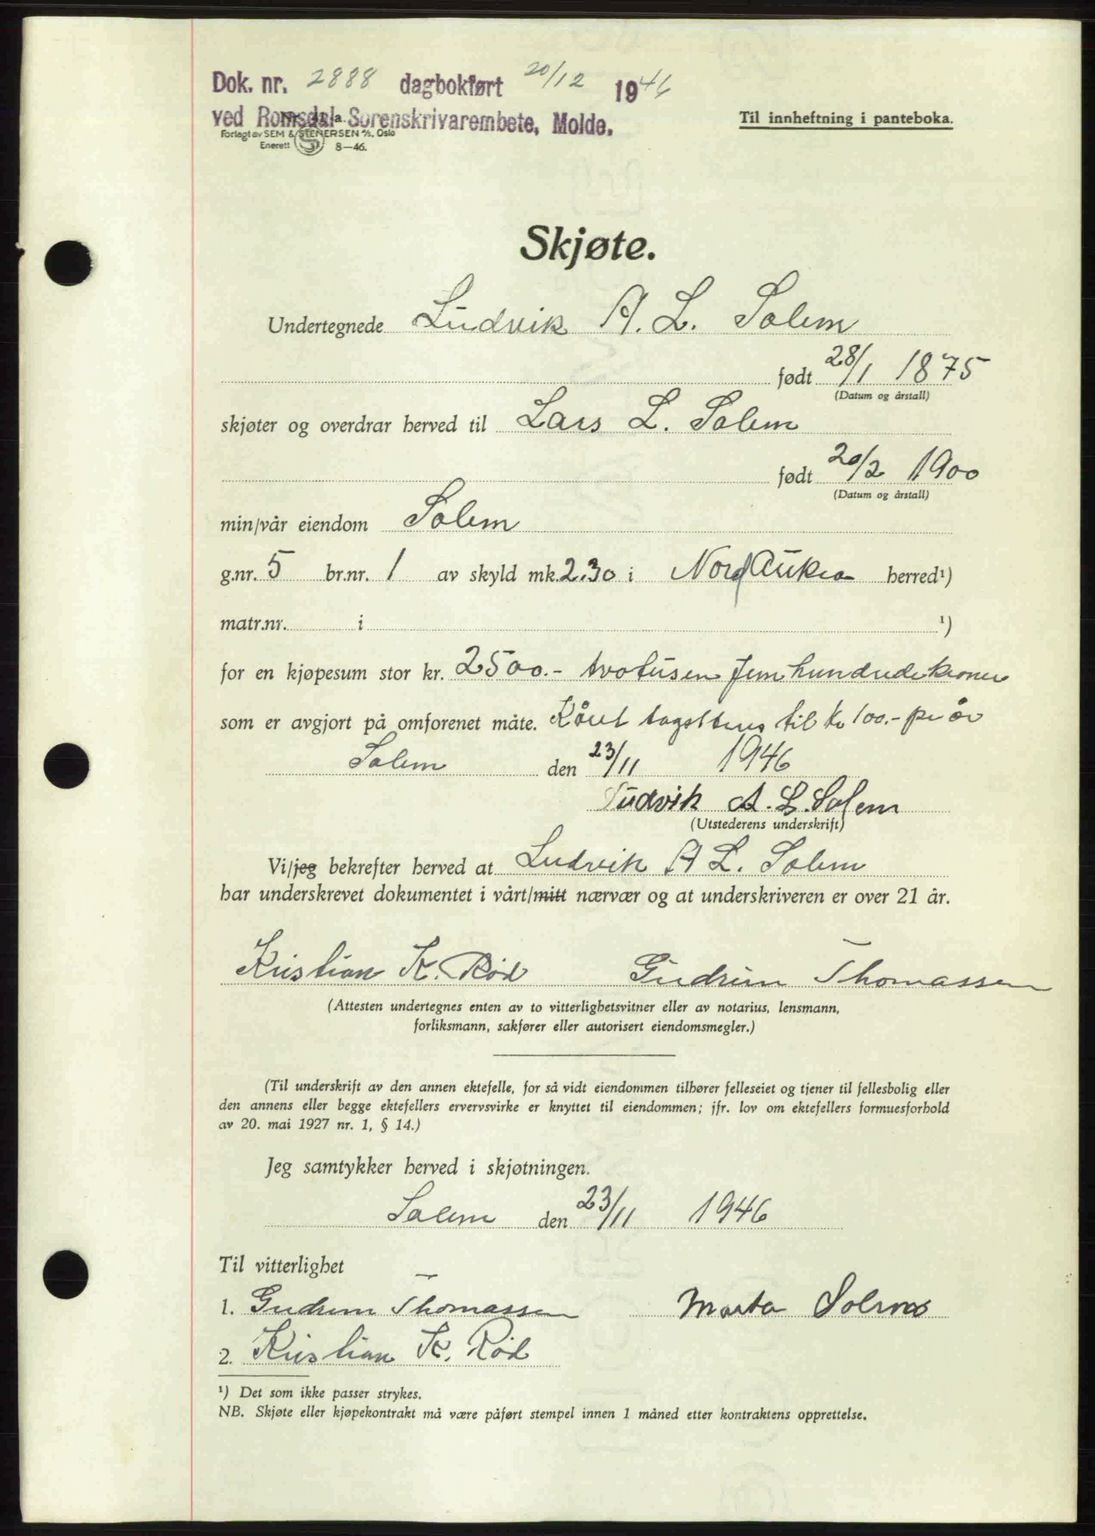 Dok. nr. 2888 dagbokført 20/12 1946
ved Romsdal Sorenskrivarembete, Molde.
Til innheftning i panteboka.
Forlagt av SEM & STENERSEN A/S, Oslo
Enerett 8—46.
Skjøte.
Undertegnede Ludvik A. L. Solem
født 28/1 1875
(Datum og årstall)
skjøter og overdrar herved til Lars L. Solem
født 20/2 1900
(Datum og årstall)
min/vår eiendom Solem
g.nr. 5 br.nr. 1 av skyld mk. 2.30 i Nord Aukra herred¹)
matr.nr. i ¹)
for en kjøpesum stor kr. 2500.- tvotusen fem hundrede kroner
som er avgjort på omforenet måte. Kåret til kr 100.- pr år
Solem den 23/11 1946
Ludvik A. L. Solem
(Utstederens underskrift)
Vi/jeg bekrefter herved at Ludvik A L. Solem
har underskrevet dokumentet i vårt/mitt nærvær og at underskriveren er over 21 år.
Kristian K. Rød Gudrun Thomassen
(Attesten undertegnes enten av to vitterlighetsvitner eller av notarius, lensmann,
forliksmann, sakfører eller autorisert eiendomsmegler.)
(Til underskrift av den annen ektefelle, for så vidt eiendommen tilhører felleseiet og tjener til fellesbolig eller
den annens eller begge ektefellers ervervsvirke er knyttet til eiendommen; jfr. lov om ektefellers formuesforhold
av 20. mai 1927 nr. 1, § 14.)
Jeg samtykker herved i skjøtningen.
Solem den 23/11 1946
Til vitterlighet
1. Gudrun Thomassen Marta
2. Kristian K. Rød
¹) Det som ikke passer strykes.
NB. Skjøte eller kjøpekontrakt må være påført stempel innen 1 måned etter kontraktens opprettelse.